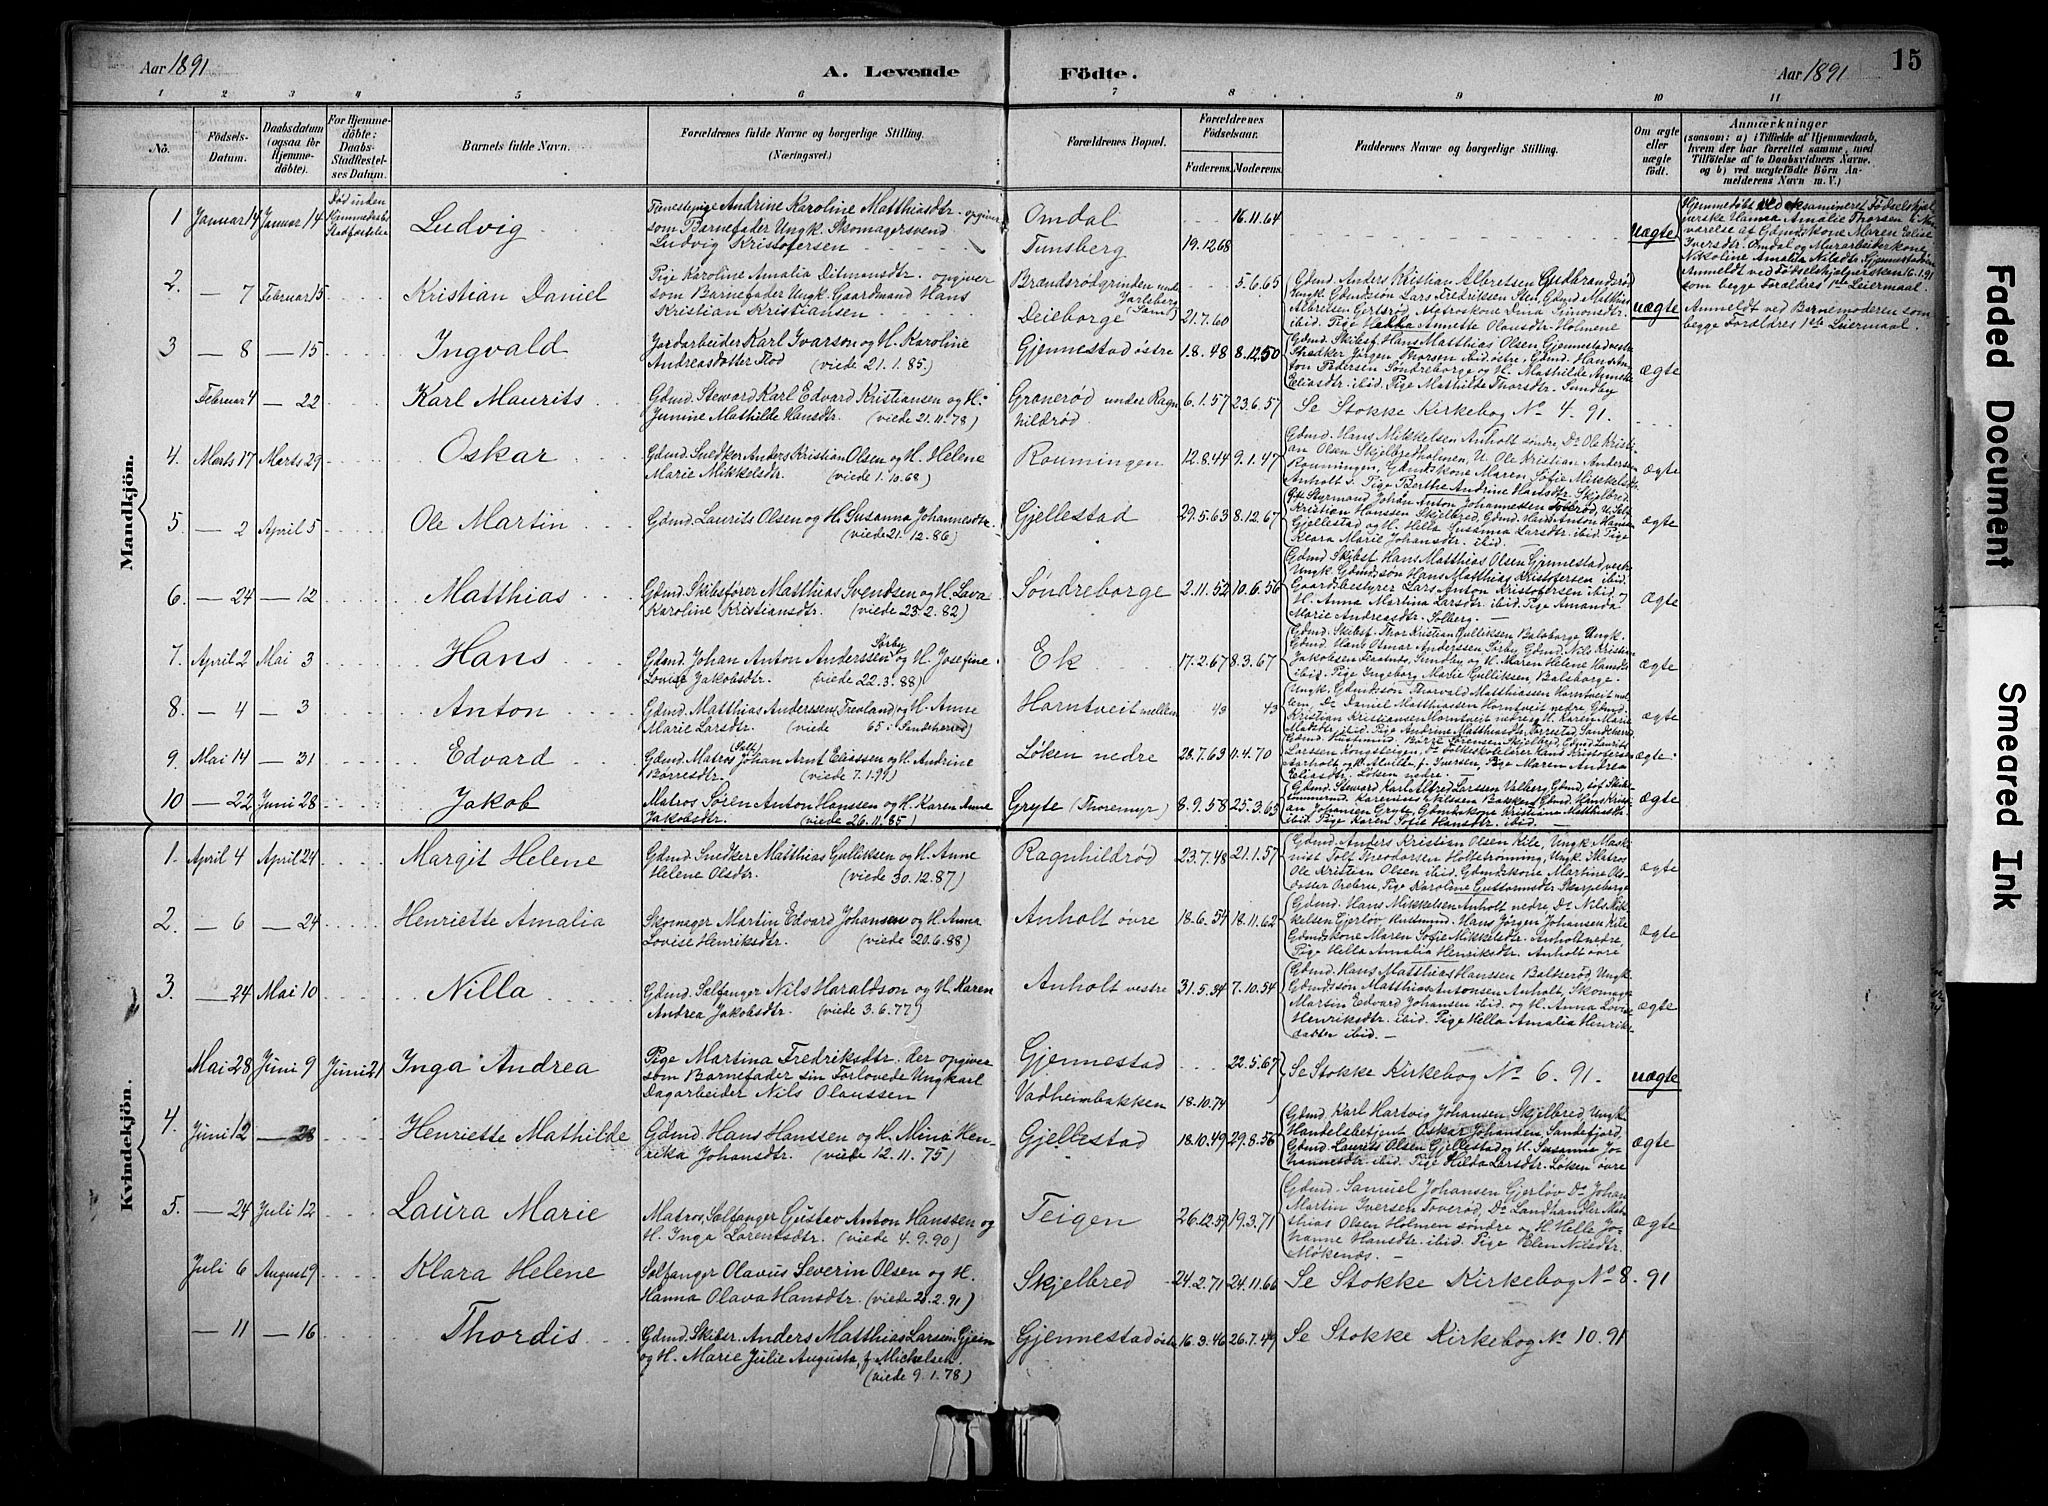 Aar 1891
A. Levende
Födte.
Aar 1891
15
1 2 3 4 5 6 7 8 9 10 11
No.
Födsels-Datum.
Daabsdatum (ogsaa for Hjemme-döbte).
For Hjemme-döbte: Daabs-Stadfæstel-ses Datum.
Barnets fulde Navn.
Forældrenes fulde Navne og borgerlige Stilling.
(Næringsvei.)
Forældrenes Bopæl.
Forældrenes Födselsaar.
Faderens. Moderens.
Faddernes Navne og borgerlige Stilling.
Om ægte eller uægte födt.
Anmærkninger
(saasom: a) i Tilfælde af Hjemmedaab, hvem der har forrettet samme, med Tilföielse af to Daabsvidners Navne. og b) ved uægtefödte Börn An-melderens Navn m. V.)
Mandkjön.
1 Januar 14 Januar 14 Död inden Hjemmedaabs Stadfæstelse
Ludvig
Tjenestepige Andrine Karoline Matthiasdtr. opgiver
som Barnefader Ungk. Skomagersvend
Ludvig Kristofersen
Omdal 16.11.64
Tunsberg 19.12.68
uægte
Hjemmedöbt ved examineret Födselshjæl-
perske Hanna Amalie Thorsen i Nær-
værelse af Gdmdskone Maren Elise
Iversdtr. Omdal og Murarbeiderkone
Nikoline Amalia Nilsdtr. Gjennestad
Anmeldt ved Födselshjælpersken 16.1.91
som begge Forældres 1ste Leiermaal.
2. — 7 Februar 15 Kristian Daniel
Pige Karoline Amalia Ditmansdtr. opgiver
som Barnefader Ungk. Gaardmand Hans
Kristian Kristiansen
Brændsrödgrinden under Jarlsberg 5.6.65
Deieborge (Sem) 21.7.60
Gdmd. Anders Kristian Albretsen Gudbrandsröd
Ungk. Gdmdssön Lars Fredriksen Sten, Gdmd. Matthis
Albretsen Gjerlsröd, Matroskone Dina Simonsdtr.
ibid. Pige Hanna Annette Olausdtr. Holmene
uægte
Anmeldt ved Barnemoderen som
begge Forældres 1ste Leiermaal.
3 — 8 — 15 Ingvald
Jordarbeider Karl Ivarson og H. Karoline
Andreasdotter Flod (viede 21.1.85.)
Gjennestad östre 1.8.48 8.12.50
Gdmd. Skibsf. Hans Matthias Olsen Gjennestad vestre
Snedker Jörgen Thorsen ibid. östre, Gdmd. Hans An-
ton Pedersen Söndreborge og H. Mathilde Annette
Eliasdtr. ibid. Pige Mathilde Thorsdtr. Sundby
ægte
Februar 4 — 22 Karl Maurits
Gdmd. Steward Karl Edvard Kristiansen og H.
Junine Mathilde Hansdtr. (viede 21.11.78)
Graneröd under Ragn
hildröd 6.1.57 23.6.57
Se Stokke Kirkebog No 4. 91.
4. Marts 17 Marts 29 Oskar
Gdmd. Snedker Anders Kristian Olsen og H. Helene
Marie Mikkelsdtr. (viede 1.10.68)
Roumingen 12.8.44 9.1.47
Gdmd. Hans Mikkelsen Anholt söndre, Do Ole Kristi-
an Olsen Skjelbredholmen, U. Ole Kristian Andersen
Roumingen, Gdmdskone Maren Sofie Mikkelsdtr.
Anholt s. Pige Berthe Andrine Hansdtr. Skjelbred.
ægte
5. — 2 April 5 Ole Martin
Gdmd. Laurits Olsen og H. Susanna Johannesdtr.
(viede 21.12.86)
Gjellestad 29.5.63 8.12.67
Styrmand Johan Anton Johannessen Toveröd,
Kristian Hanssen Skjelbred, Gdmd. Hans Anton Hansen
Gjellestad og H. Hella Susanna Larsdtr. ibid. Pige
Klara Marie Johansdtr. ibid.
ægte
6. — 24 — 12 Matthias
Gdmd. Skibsförer Matthias Svendsen og H. Lava
Karoline Kristiansdtr. (viede 23.2.82)
Söndreborge 2.11.52 10.6.56
Gdmd. Skibsf. Hans Matthias Olsen Gjennestad vestre
Ungk. Gdmdssön Hans Matthias Kristofersen ibid.
Gaardsbestyrer Lars Anton Kristofersen ibid. og
H. Anna Martina Larsdtr. ibid. Pige Amanda
Marie Andreasdtr. Solberg.
ægte
7. April 2 Mai 3 Hans
Gdmd. Johan Anton Anderssen Sörby og H. Josefine
Lovise Jakobsdtr. (viede 22.3.88)
Ek 17.2.67 8.3.67
Gdmd. Skibsf. Thor Kristian Gulliksen Balsborge Ungk.
Gdmd. Hans Otmar Anderssen Sörby, Gdmd. Nils Kristian
Jakobsen Flaatnes, Sundby og H. Maren Helene Hansdtr.
ibid. Pige Ingeborg Marie Gulliksen, Balsborge.
ægte
8. — 4 — 3 Anton
Gdmd. Matthias Anderssen Trevland og H. Anne
Marie Larsdtr. (viede 65 i Sandeherred)
Horntveit mellem 43 43
Ungk. Gdmdssön Thorvald Matthiassen Horntveit mel-
lem, Do Daniel Matthiassen Horntveit nedre, Gdmd.
Kristian Kristiansen Horntveit nedre og H. Karen Marie
Matsdtr. ibid. Pige Andrine Matthiasdtr. Torrestad, Sandeherred
ægte
9. Mai 14 — 31 Edvard
Gdmd. Matros Johan Arnt Eliassen og H. Andrine
Börresdtr. (viede 7.1.91)
Löken nedre 23.7.63 11.4.70
Gdmd. Husmand. Börre Sörensen Skjelbred, Gdmd. Laurits
Larssen Kongsteigen, Do Folkeskolelærer Hans Kristofersen
Aarholt og H. Alvilde f. Iversen, Pige Maren Andrea
Eliasdtr. Löken nedre.
ægte.
10 — 22 Juni 28 Jakob
Matros Sören Anton Hanssen og H. Karen Anne
Jakobsdtr. (viede 26.11.85)
Gryte (Thoremyr) 8.9.58 25.3.63
Gdmd. Steward Karl Alfred Larssen Valberg,
Karenius Nilssen Bakken, Gdmd. Hans Kristi-
an Johansen Gryte, Gdmdskone Kristiane Matthiasdtr.
ibid. Pige Karen Sofie Hansdtr. ibid.
ægte
Kvindekjön.
1. April 4 April 24 Margit Helene
Gdmd. Snedker Matthias Gulliksen og H. Anne
Helene Olsdtr. (viede 30.12.87)
Ragnhildröd 23.7.48 21.1.57
Gdmd. Anders Kristian Olsen Kile, Ungk. Maski-
nist Tolf Theodorsen Holtetromning, Ungk. Matros
Ole Kristian Olsen ibid. Gdmdskone Martine Ols-
datter Orebru, Pige Karoline Gustavsdtr. Skarpeborge
ægte
2. — 6 — 24 Henriette Amalia
Skomager Martin Edvard Johansen og H. Anna
Lovise Henriksdtr. (viede 20.6.88)
Anholt övre 18.6.54 18.11.62
Gdmd. Hans Mikkelsen Anholt nedre, Do Nils Mik-
kelsen Gjerlöv, Husmand. Hans Jörgen Johansen Kile
Gdmdskone Maren Sofie Mikkelsdtr. Anholt nedre,
Pige Hella Amalia Henriksdtr. Anholt övre
ægte
3. — 24 Mai 10 Nilla
Gdmd. Sælfanger Nils Haraldson og H. Karen
Andrea Jakobsdtr. (viede 3.6.77)
Anholt vestre 31.5.34 7.10.54
Gdmd. Hans Matthias Hanssen Baltseröd, Ungk.
Gdmdssön Matthias Antonsen Anholt, Skomager
Martin Edvard Johansen ibid. og H. Anna Lovise
Henriksdtr. ibid. Pige Hella Amalia Henriks-
datter ibid.
ægte
Mai 28 Juni 9 Juni 21 Inga Andrea
Pige Martina Fredriksdtr. der opgiver
som Barnefader sin Forlovede Ungkarl
Dagarbeider Nils Olaussen
Gjennestad 22.5.67
Vadheimbakken 18.10.74
Se Stokke Kirkebog No 6. 91.
uægte
4. Juni 12 — 28 Henriette Mathilde
Gdmd. Hans Hanssen og H. Mina Hen-
rika Johansdtr. (viede 12.11.75)
Gjellestad 18.10.49 29.8.56
Gdmd. Karl Hartvig Johansen Skjelbred, Ungk.
Handelsbetjent Oskar Johansen Sandefjord,
Gdmd. Laurits Olsen Gjellestad og H. Susanne Jo-
hannesdtr. ibid. Pige Hilda Larsdtr. Löken övre
ægte
5. — 24 Juli 12 Laura Marie
Matros, Sælfanger Gustav Anton Hanssen og
H. Inga Lorentsdtr. (viede 4.9.90)
Teigen 26.12.59 19.3.71
Gdmd. Samuel Johansen Gjerlöv, Do Johan
Martin Iversen Toveröd, Do Landhandler Mat-
thias Olsen Holmen söndre og H. Helle Jo-
hanne Hansdtr. ibid. Pige Elen Nilsdtr.
Mökenæs.
ægte
Juli 6 August 9 Klara Helene
Sælfanger Olavus Severin Olsen og H.
Hanna Olava Hansdtr. (viede 21.2.91)
Skjelbred 24.2.71 24.11.66
Se Stokke Kirkebog No 8. 91
— 11 — 16 Thordis
Gdmd. Skibsr. Anders Matthias Larsen Gjenn
og H. Marie Julie Augusta, f. Michelsen.
(viede 9.1.78)
Gjennestad östre 16.3.46 26.7.49
Se Stokke Kirkebog No 10. 91
Faded Document
Smeared Ink